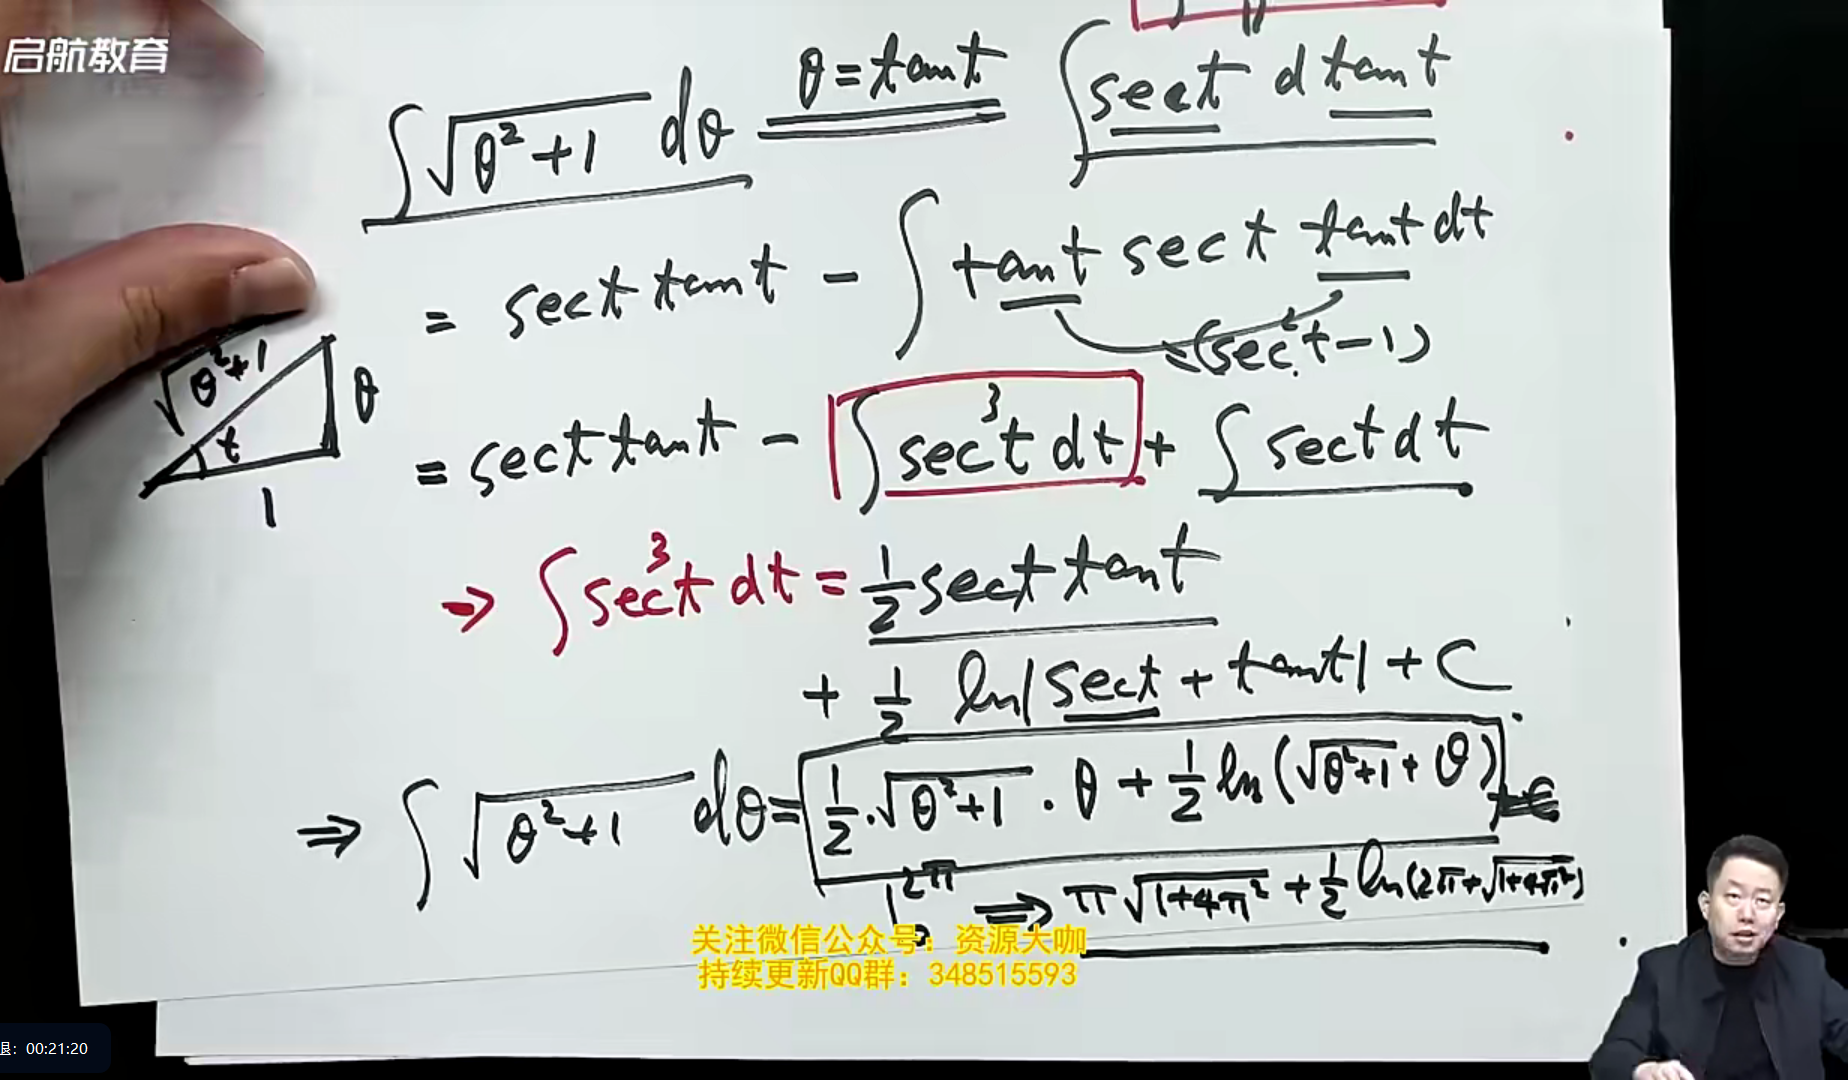 启航教育
∫√(θ²+1) dθ θ=tant ∫sect d tant
= sect tant − ∫ tant sect tant dt
=(sec²t−1)
√(θ²+1) θ t 1
= sect tant − ∫sec³t dt + ∫sect dt
⇒ ∫sec³t dt = ½ sect tant
+ ½ ln|sect + tant| + C
⇒ ∫√(θ²+1) dθ = ½·√(θ²+1)·θ + ½ ln(√(θ²+1)+θ)
|₀^2π ⇒ π√(1+4π²) + ½ ln(2π+√(1+4π²))
关注微信公众号：资源大咖
持续更新QQ群：348515593
退：00:21:20